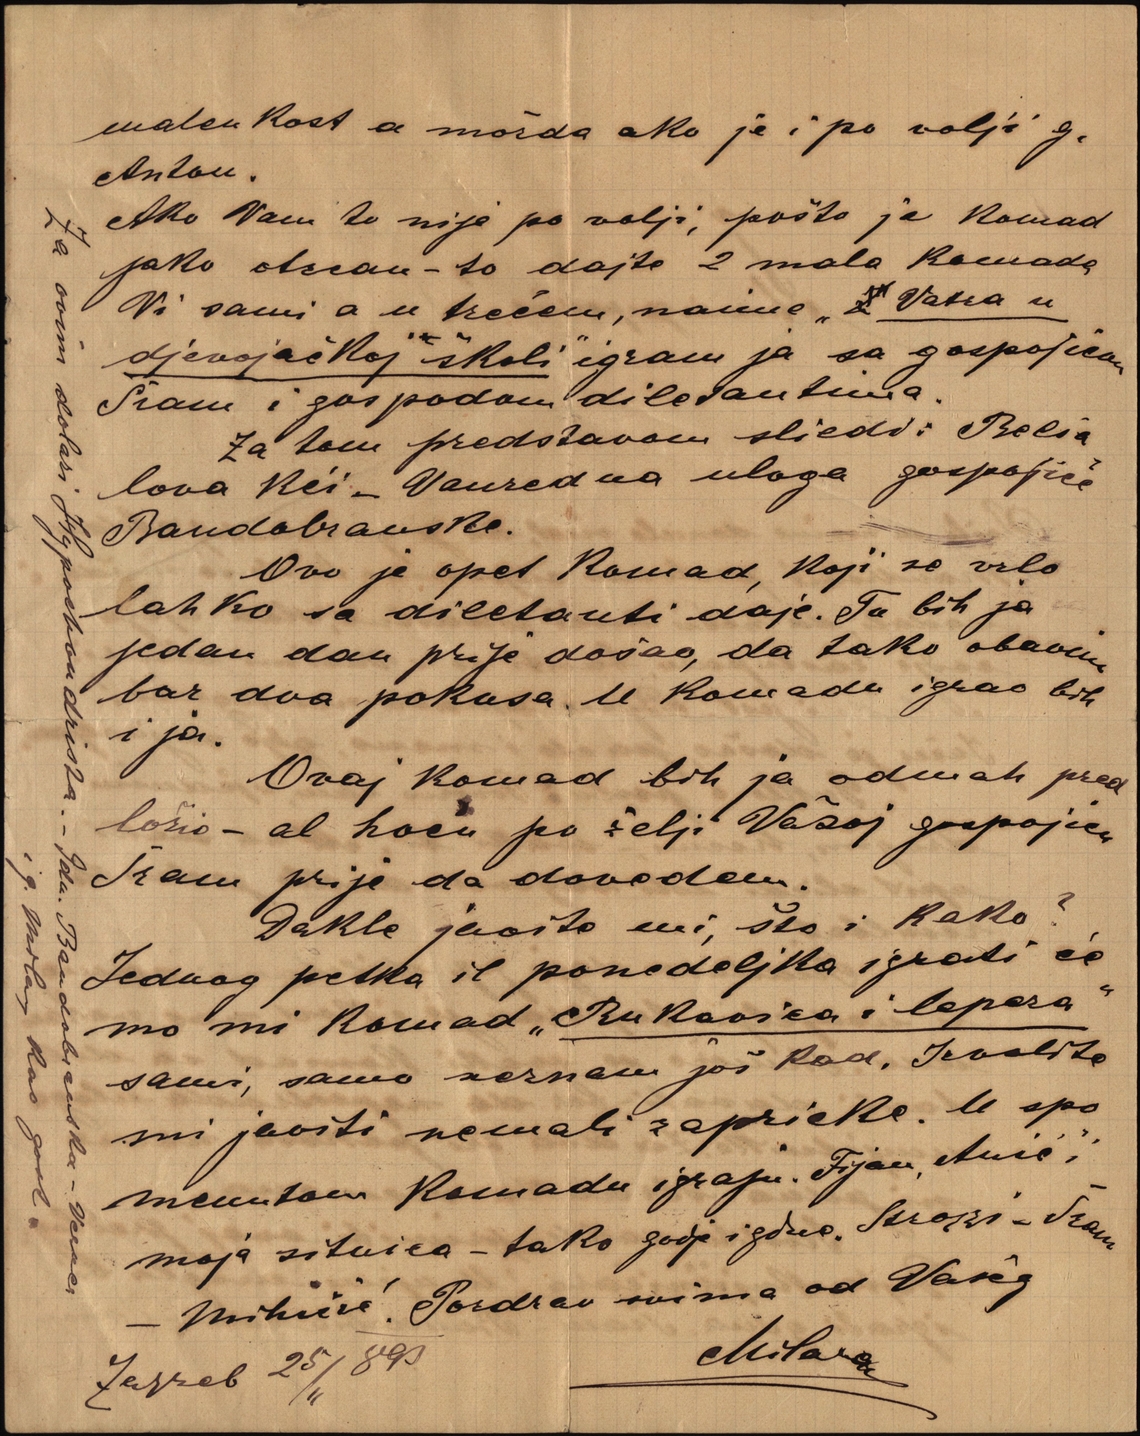 malenkost a možda ako je i po volji g.
Anton.
Ako Vam to nije po volji, pošto je komad
jako otrcan – to dajte 2 mala komada
Vi sami a u trećem, naime „ Vatra u
djevojačkoj školi" igram ja sa gospojicom
Šram i gospodom diletantima.
Za tom predstavom sliedi: Belia
lova kći – Vanredna uloga gospojice
Bandobranske.
Ovo je opet komad, koji se vrlo
lahko sa diletanti daje. Tu bih ja
jedan dan prije došao, da tako obavim
bar dva pokusa. U komadu igrao bih
i ja.
Ovaj komad bih ja odmah pred
ložio – al hoću po želji Vašoj gospojicu
Šram prije da dovedem.
Dakle javite mi, što i kako?
Jednog petka il ponedeljka igrati će
mo mi komad „Rukavica i lepeza"
sami, samo neznam još kad. Izvolite
mi javiti nemali zaprieke. U spo
menutom komadu igraju. Fijan, Anić i
moja sitnica – tako godje i gdne. Strozzi – Šram
– Mihičić. Pozdrav svima od Vašeg
Milana
Zagreb 25/11 893
Za ovim dolazi Hypochondrista. – Bandobranska –
i g. kao gost.